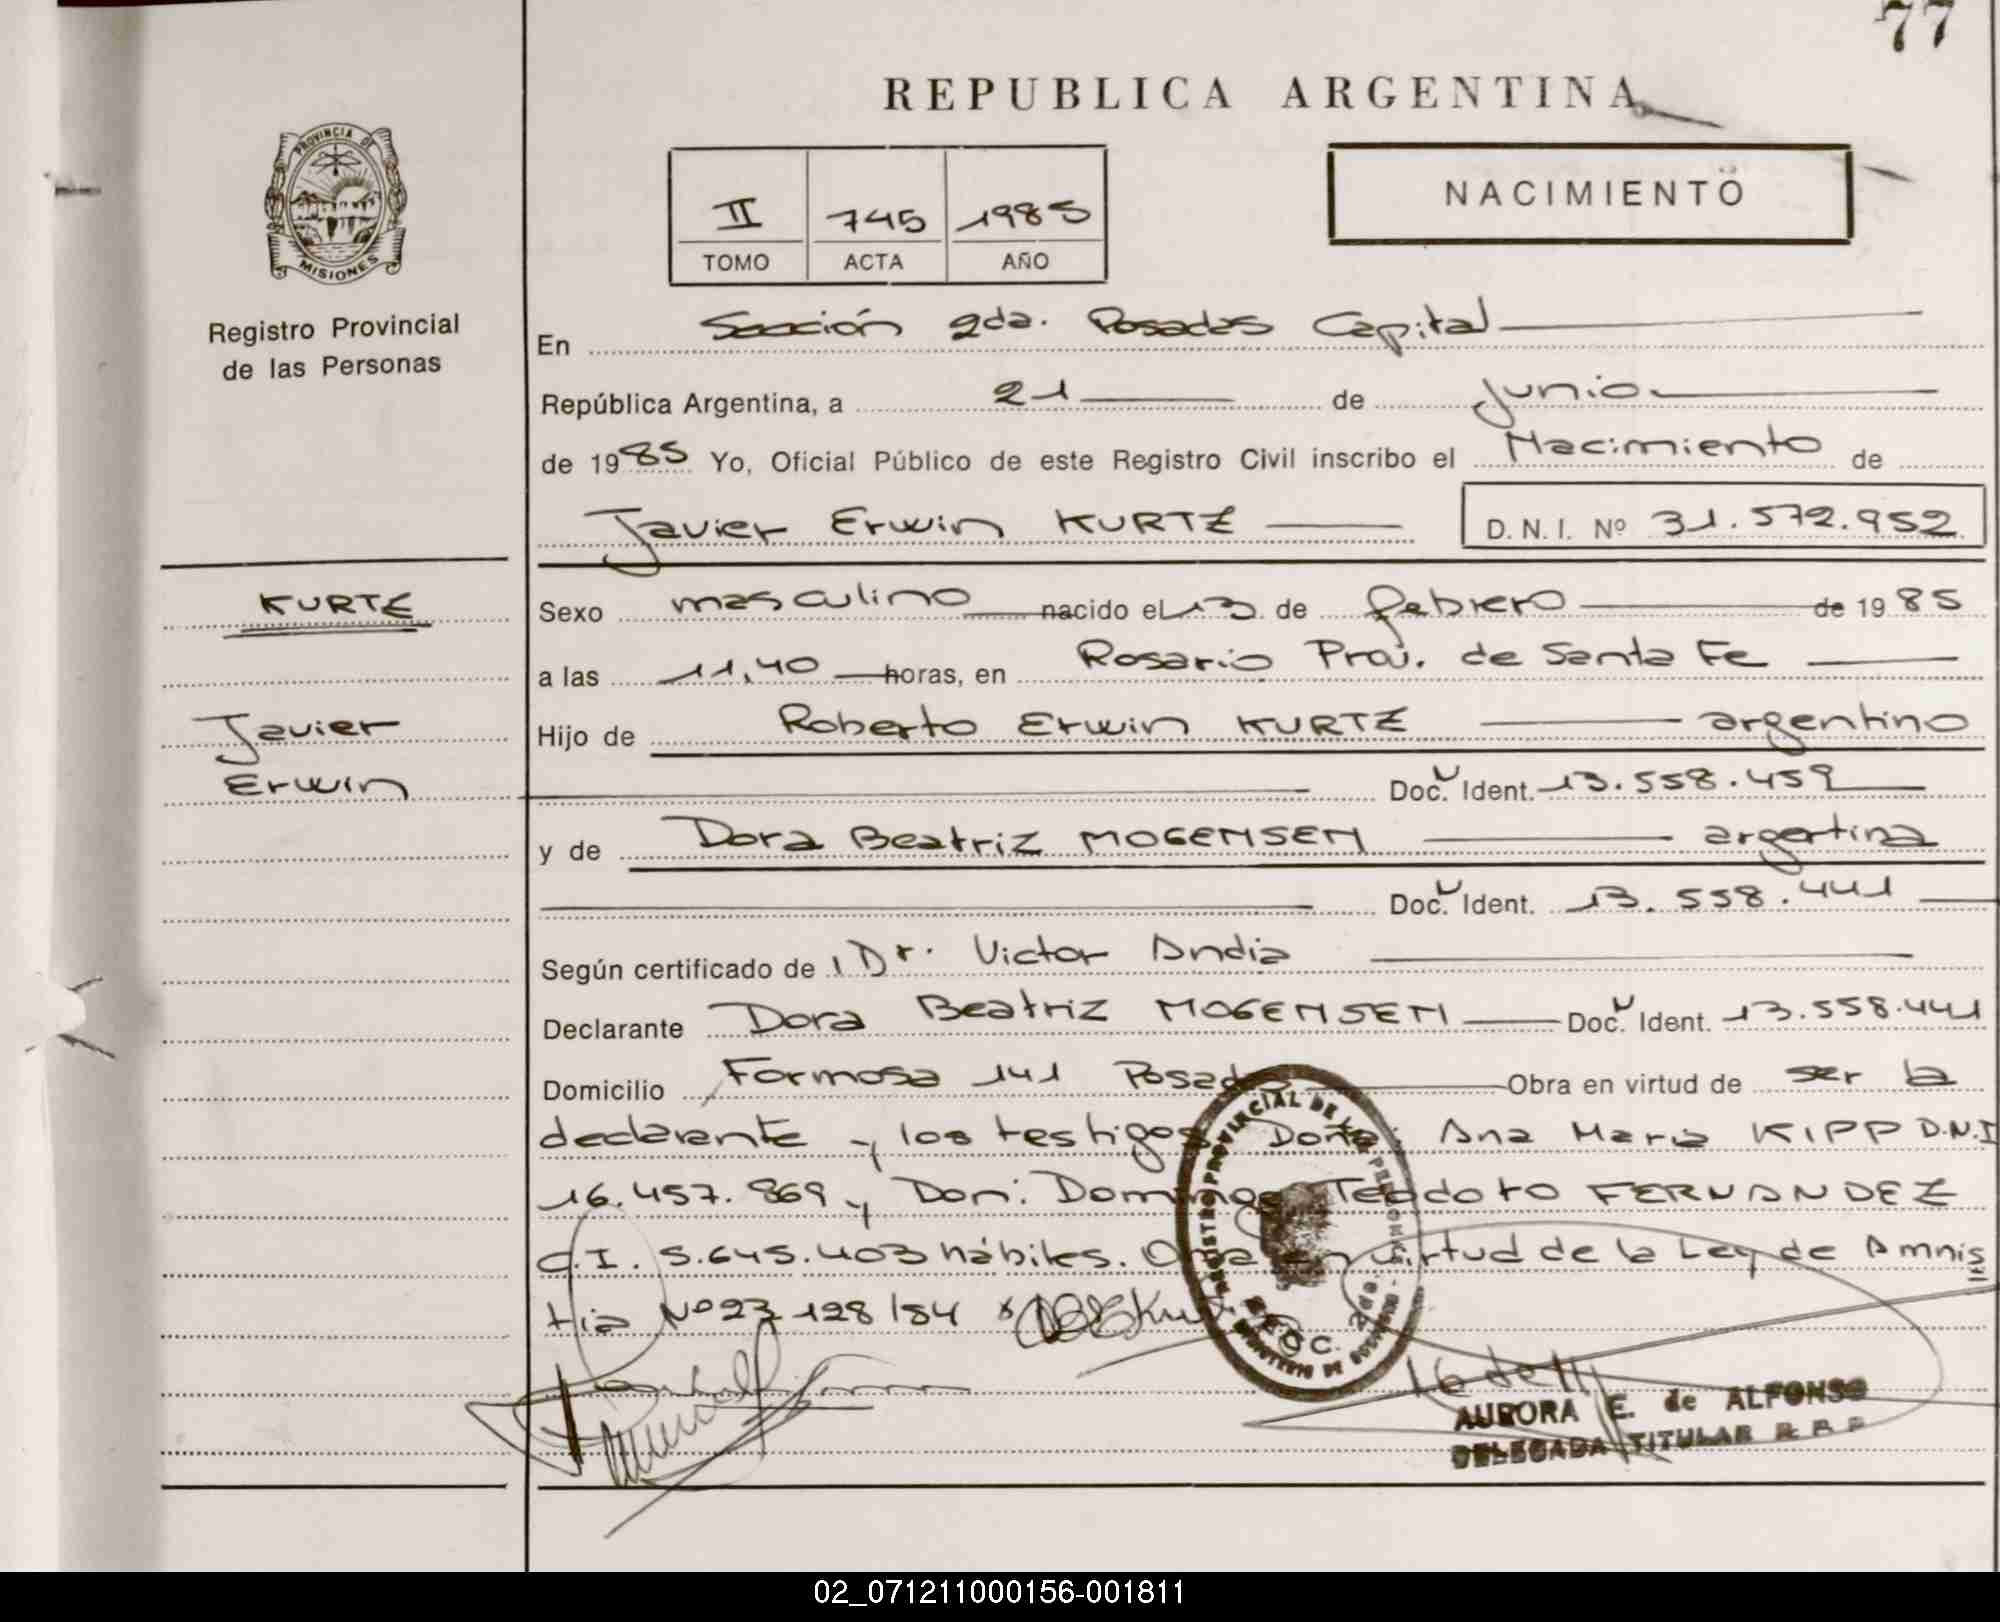 77
REPUBLICA ARGENTINA
PROVINCIA DE
MISIONES
Registro Provincial
de las Personas
II 745 1985
TOMO ACTA AÑO
NACIMIENTO
En Sección 2da. Posadas Capital
República Argentina, a 21 de Junio
de 1985 Yo, Oficial Público de este Registro Civil inscribo el Nacimiento de
Javier Erwin KURTZ D.N.I. Nº 31.572.952
KURTZ
Javier
Erwin
Sexo masculino nacido el 13 de febrero de 1985
a las 11,40 horas, en Rosario Prov. de Santa Fe
Hijo de Roberto Erwin KURTZ argentino
Doc. Ident. 13.558.459
y de Dora Beatriz MOGENSEN argentina
Doc. Ident. 13.558.441
Según certificado de Dr. Victor Andia
Declarante Dora Beatriz MOGENSEN Doc. Ident. 13.558.441
Domicilio Formosa 141 Posadas Obra en virtud de ser la
declarante y los testigos Doña Ana Maria KIPP D.N.I
16.457.869 y Don: Domingo Teodoro FERNANDEZ
C.I. 5.645.403 hábiles. Obra en virtud de la Ley de Amnis
tia Nº 23.128/84
REGISTRO PROVINCIAL DE LAS PERSONAS
2da. SECC.
MINISTERIO DE
AURORA E. de ALFONSO
DELEGADA TITULAR R. P. P.
02_071211000156-001811